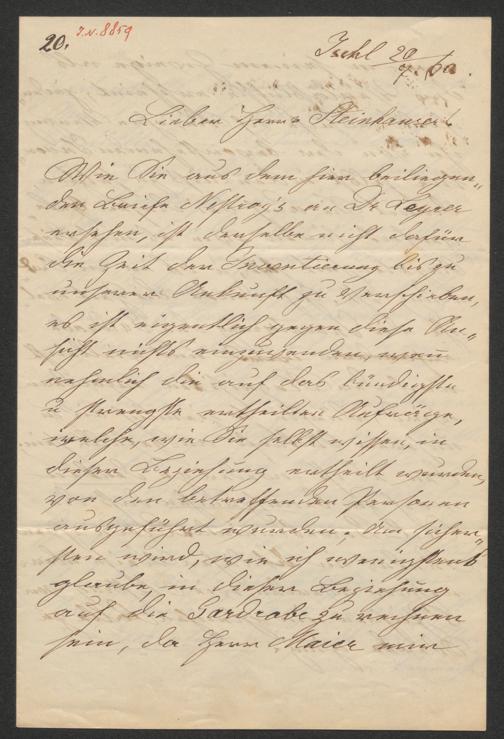 20.
I.N. 8859
Ischl 20/9. 60.
Lieber Herr Steinhauser!
Wie Sie aus dem hier beiliegen„
den Briefe Nestroy's an Dr
ersehen, ist derselbe nicht dafür
die Zeit der Inventierung bis zu
unserer Ankunft zu verschieben,
es ist eigentlich gegen diese An„
sicht nichts einzuwenden, wenn
nehmlich die auf das bündigste
u strengste ertheilten Aufträge,
welche, wie Sie selbst wissen, in
dieser Beziehung ertheilt wurden,
von den betreffenden Personen
ausgeführt wurden. Am sicher„
sten wird, wie ich wenigstens
glaube, in dieser Beziehung
auf die Gardrobe zu rechnen
sein, da Herr Maier mir